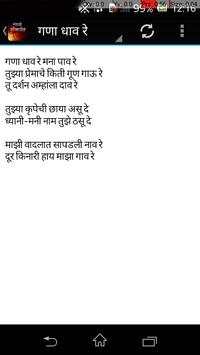 99% 12:16
गणा धाव रे
गणा धाव रे मना पाव रे
तुझ्या प्रेमाचे किती गूण गाऊ रे
तू दर्शन अम्हांला दाव रे
तुझ्या कृपेची छाया असू दे
ध्यानी-मनी नाम तुझे ठसू दे
माझी वादलात सापडली नाव रे
दूर किनारी हाय माझा गाव रे